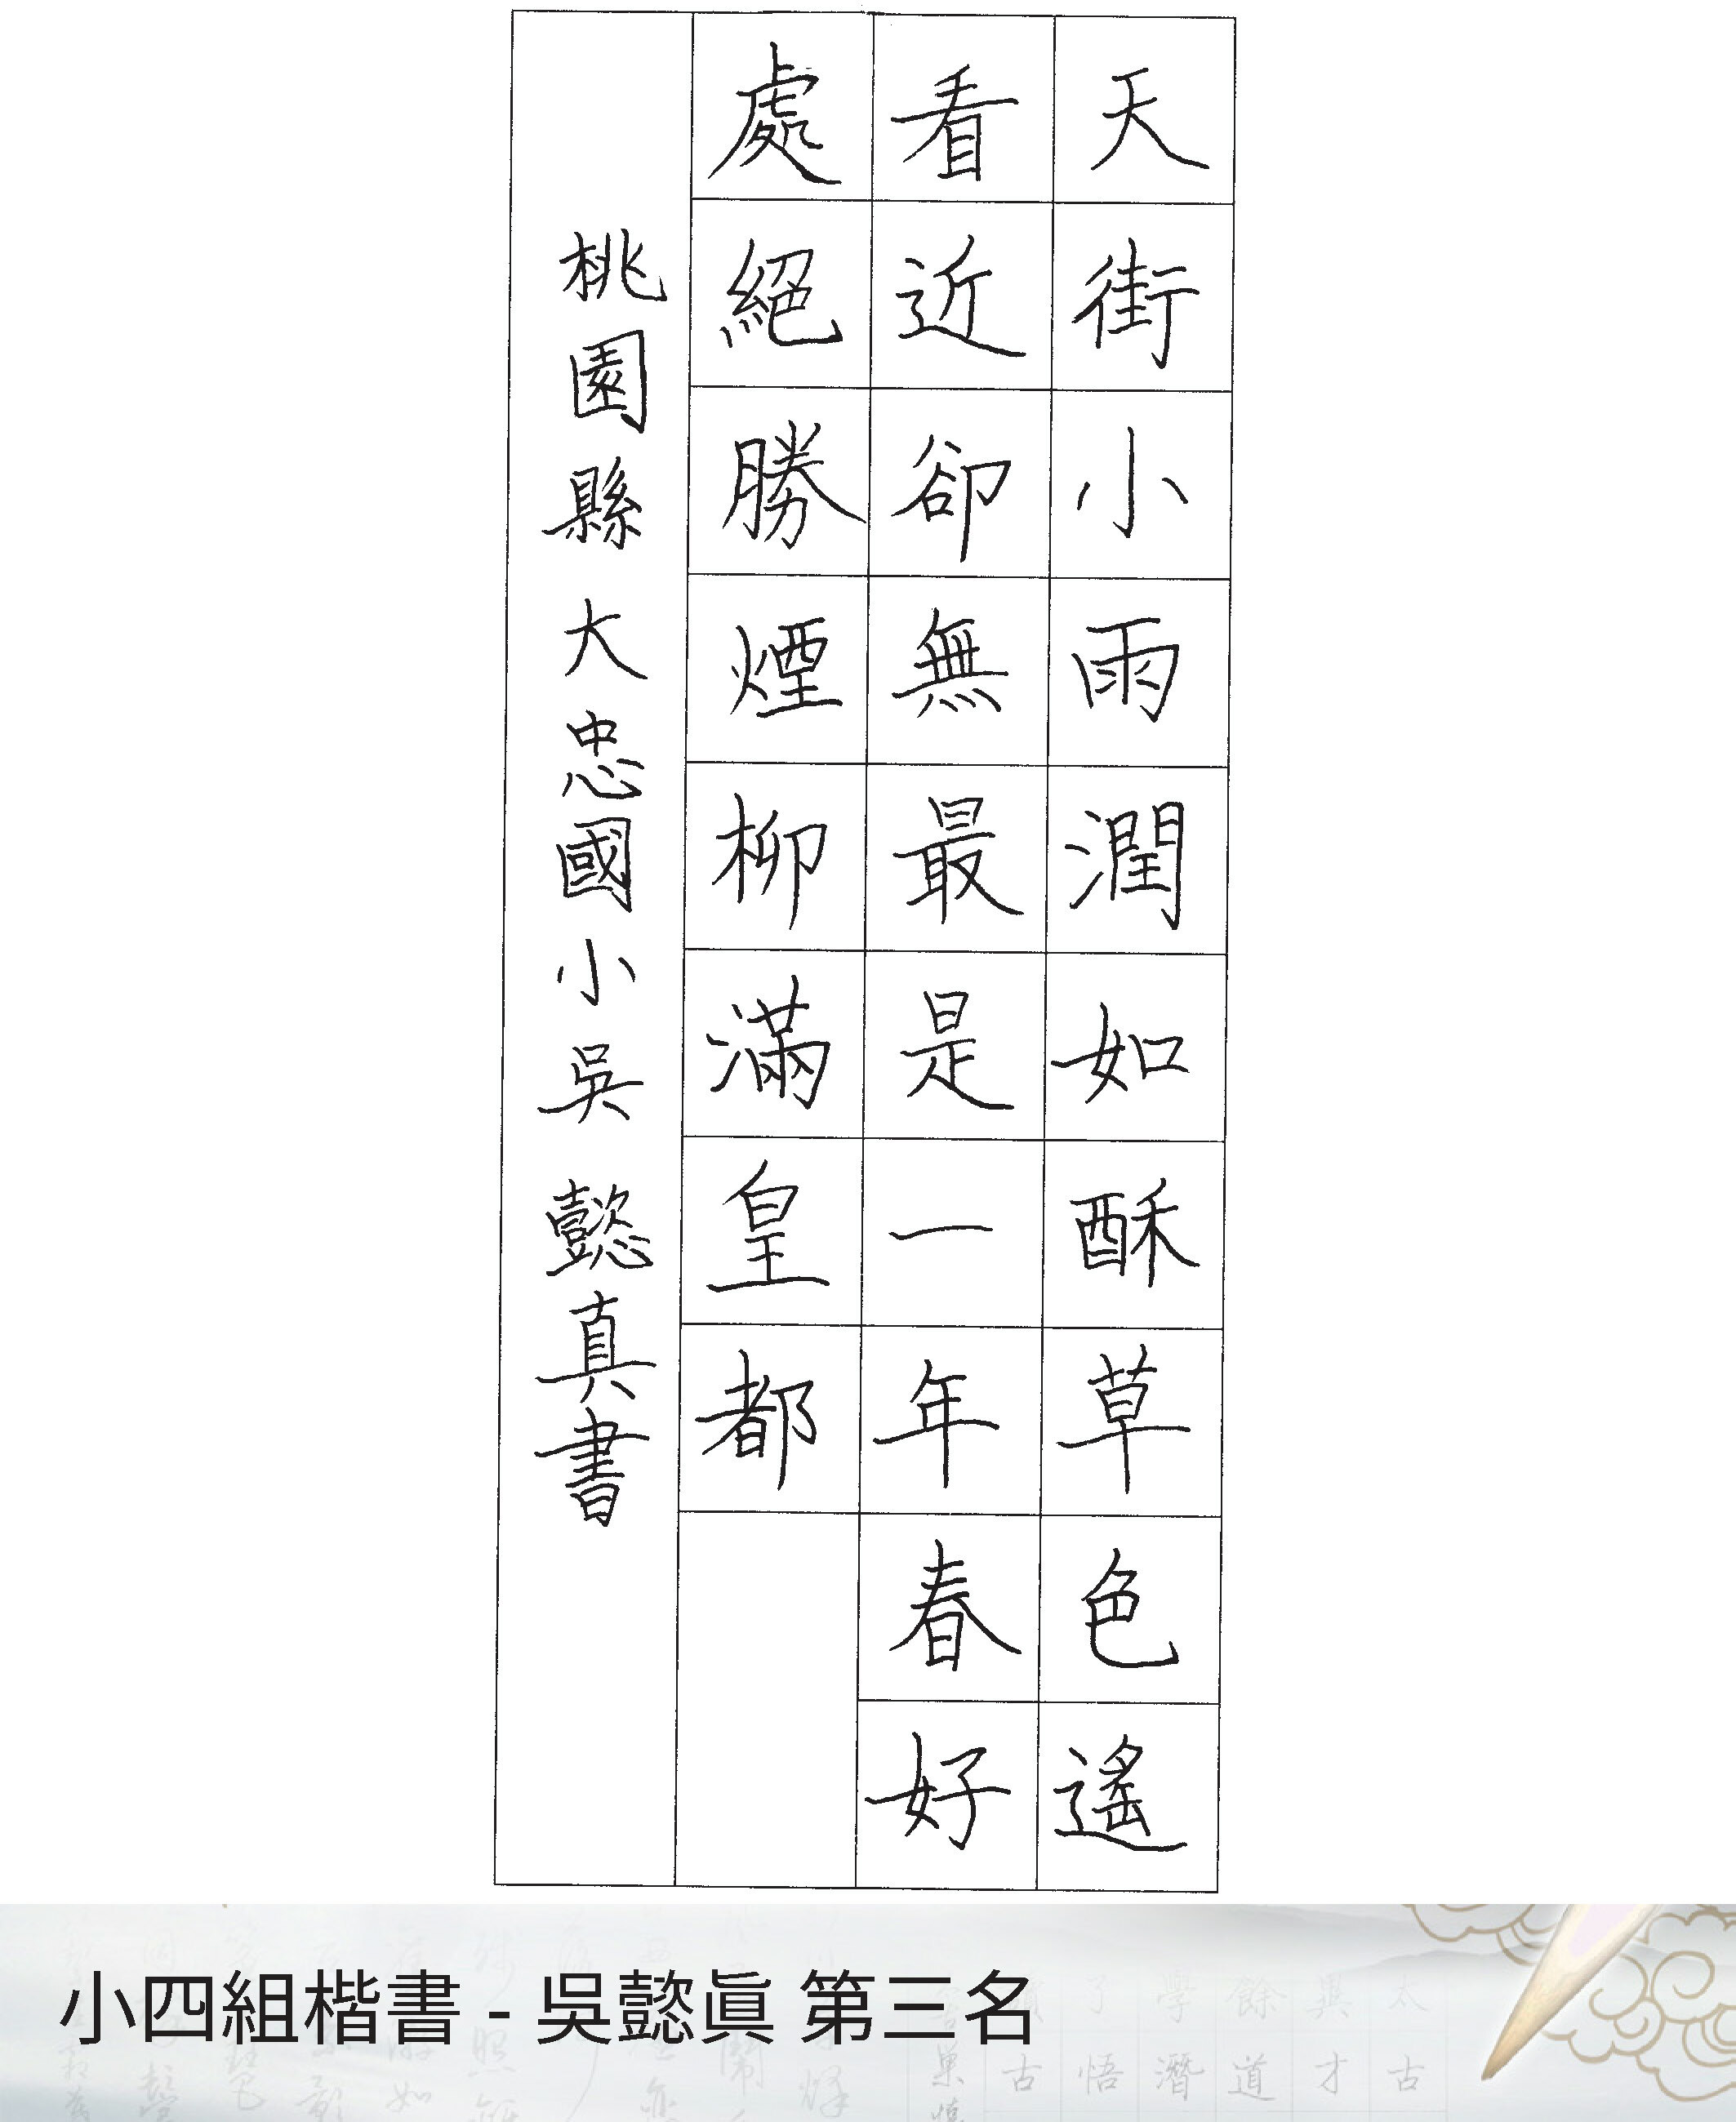 天街小雨潤如酥草色遙
看近卻無最是一年春好
處絕勝煙柳滿皇都
桃園縣大忠國小吳懿真書
小四組楷書 - 吳懿眞 第三名